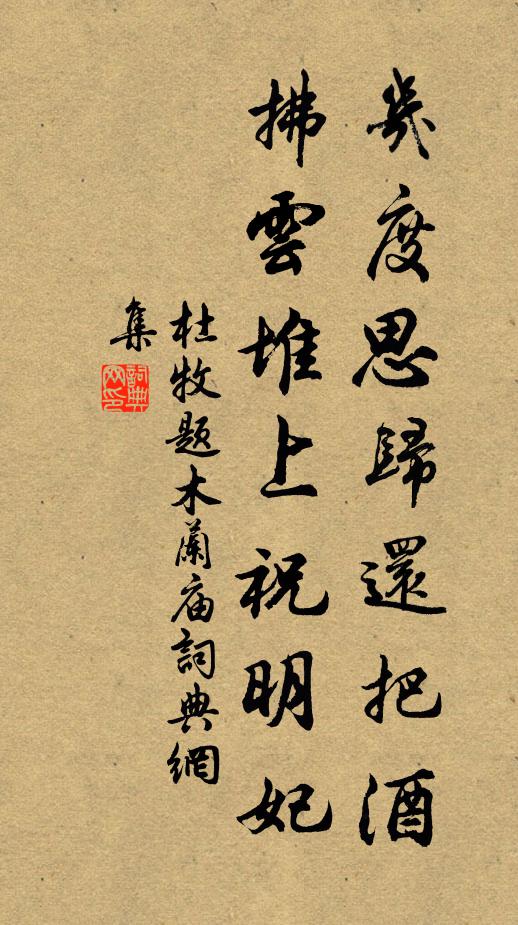 幾度思歸還把酒
拂雲堆上祝明妃
杜牧題木蘭庙詞典網
集
詞典網印